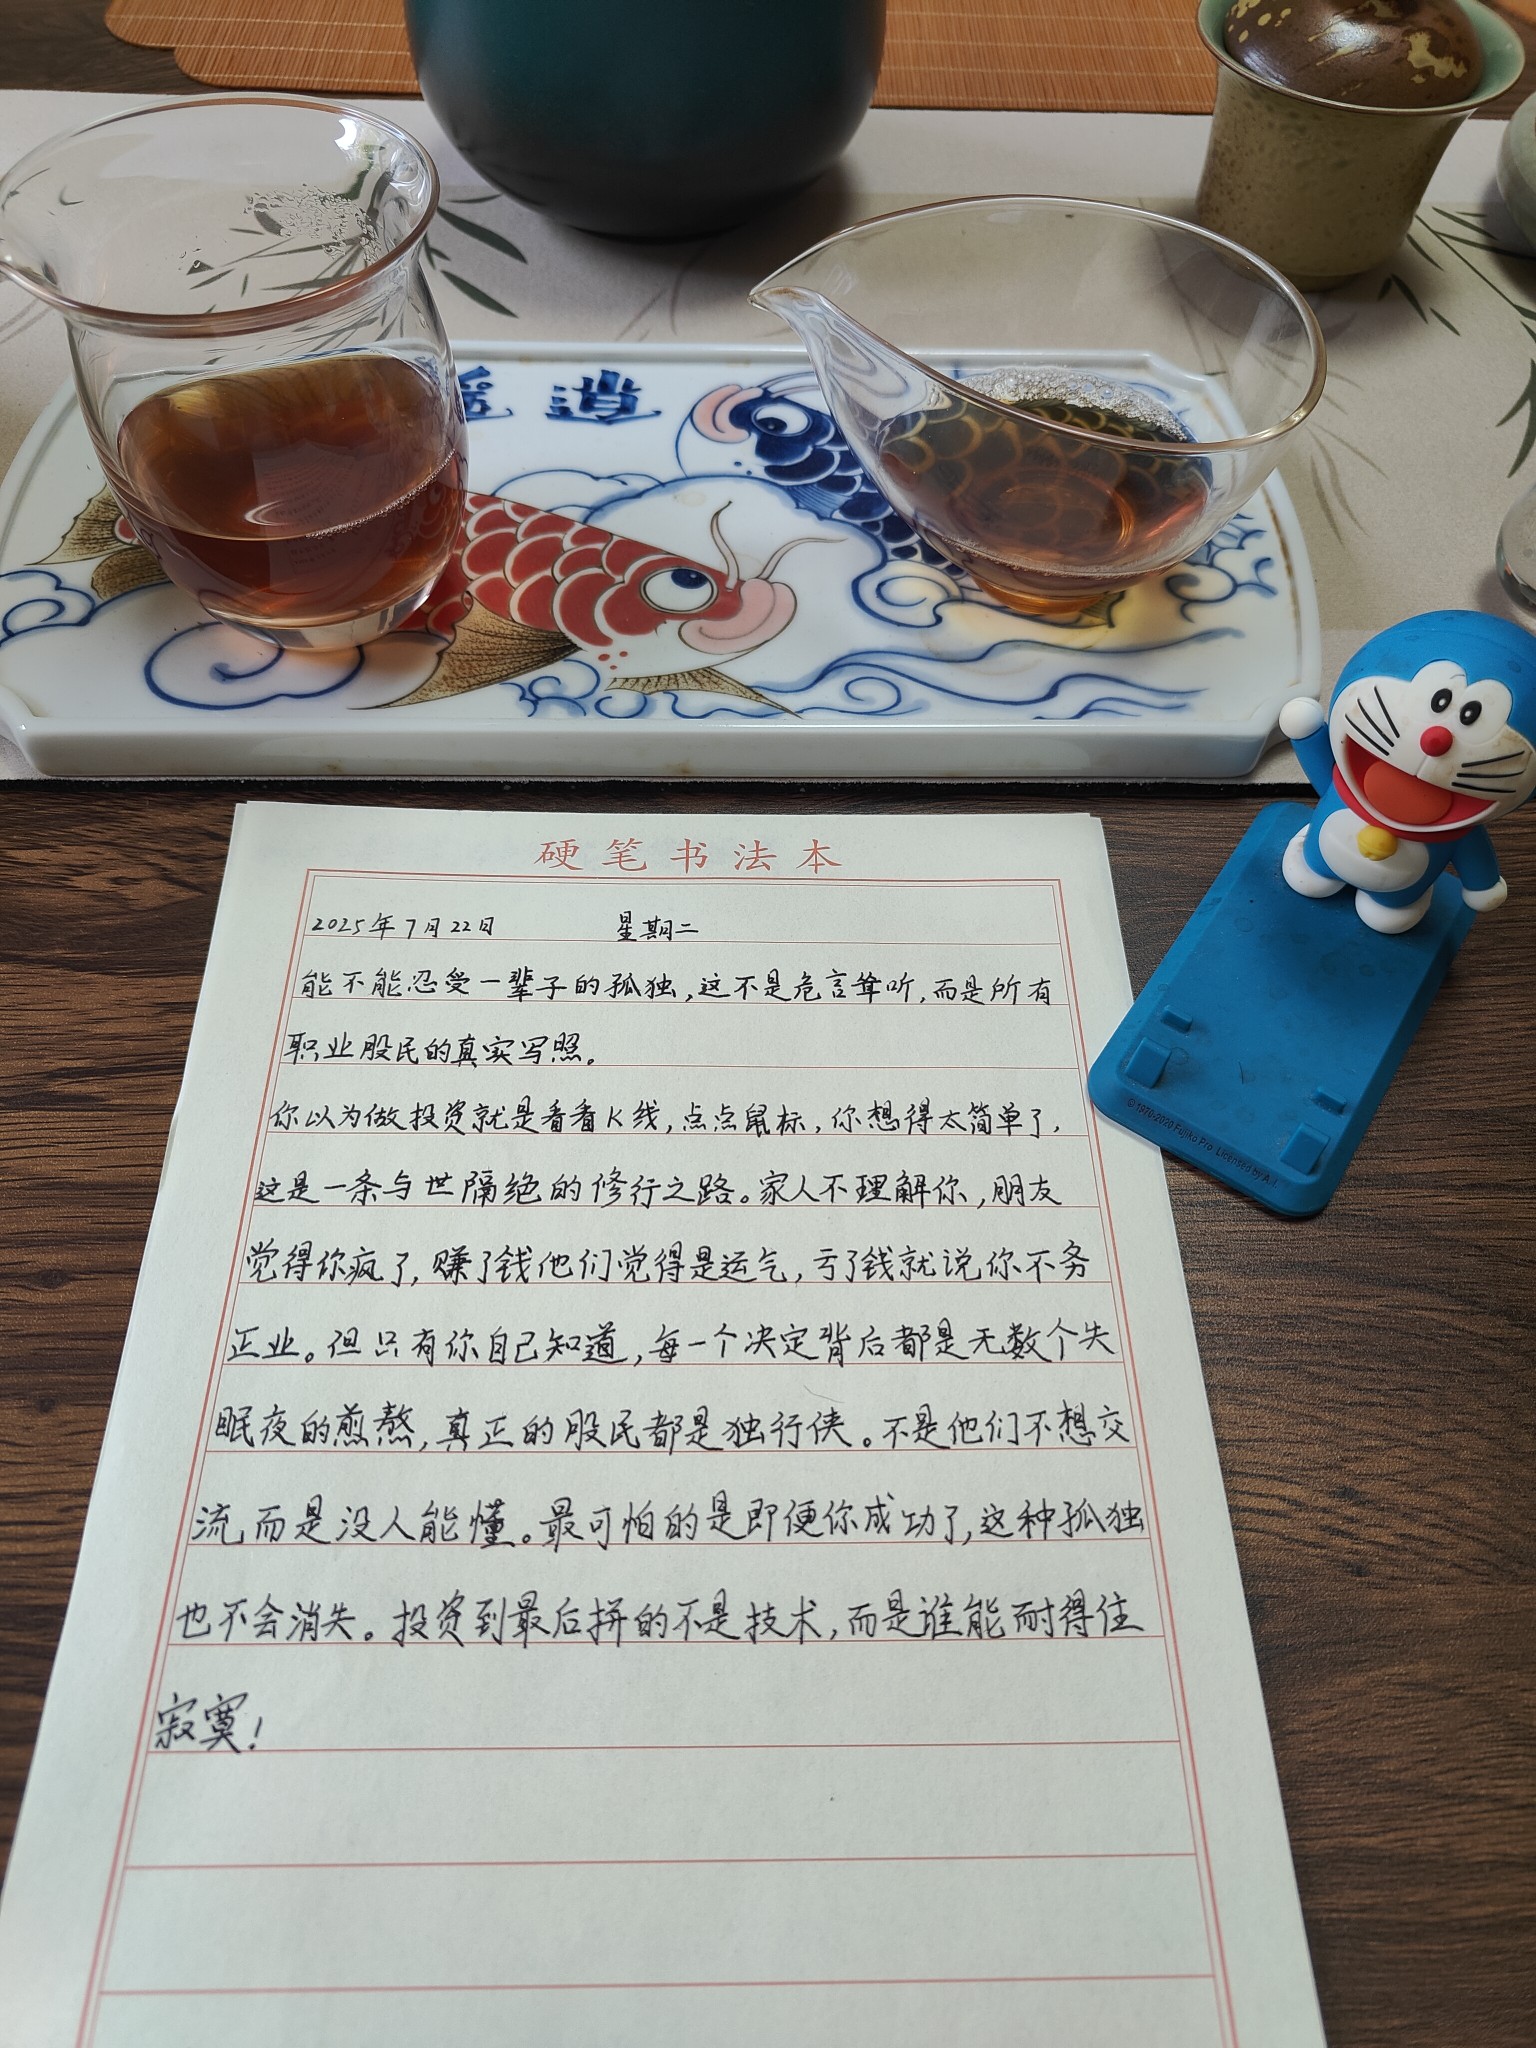 逍遥
硬笔书法本
2025年7月22日 星期二
能不能忍受一辈子的孤独,这不是危言耸听,而是所有
职业股民的真实写照。
你以为做投资就是看看K线,点点鼠标,你想得太简单了,
这是一条与世隔绝的修行之路。家人不理解你,朋友
觉得你疯了,赚了钱他们觉得是运气,亏了钱就说你不务
正业。但只有你自己知道,每一个决定背后都是无数个失
眠夜的煎熬,真正的股民都是独行侠。不是他们不想交
流,而是没人能懂。最可怕的是即便你成功了,这种孤独
也不会消失。投资到最后拼的不是技术,而是谁能耐得住
寂寞!
© 1970-2020 Fujiko Pro Licensed by A.I.